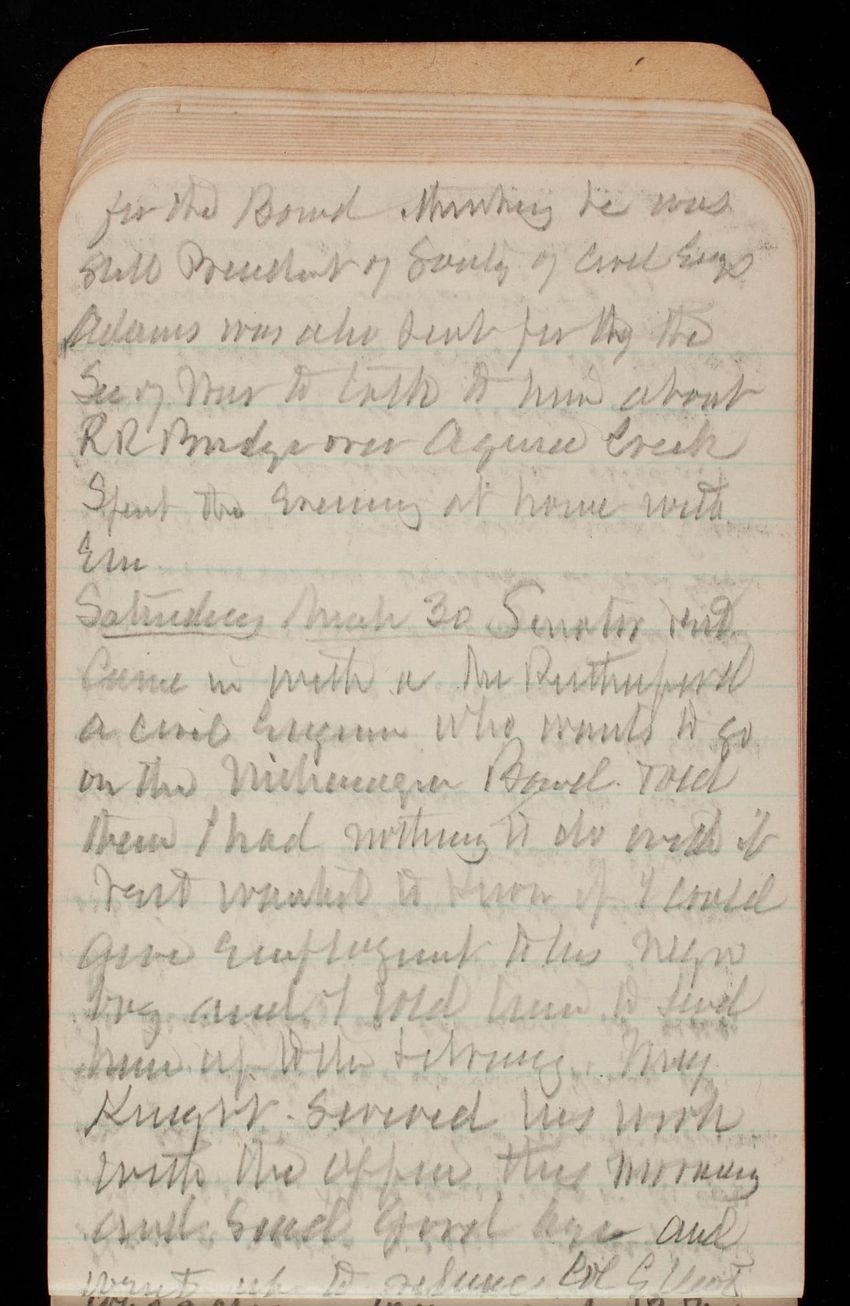 for the Board thinking he was
still President of Society of Civil Engs
Adams was also sent for by the
Sec of War to talk to him about
RR Bridge over Aquia Creek
Spent the Evening at home with
Em
Saturday March 30 Senator
Came in with a Mr Rutherford
a civil Engineer who wants to go
on the Nicharagua Board. Told
them I had nothing to do with it
wanted to know if I could
give Employment to his Negro
boy and I told him to send
him up to the Library. Maj
Knight. Severed his work
with the office this morning
and Said Good bye and
went up to relieve Col Elliot